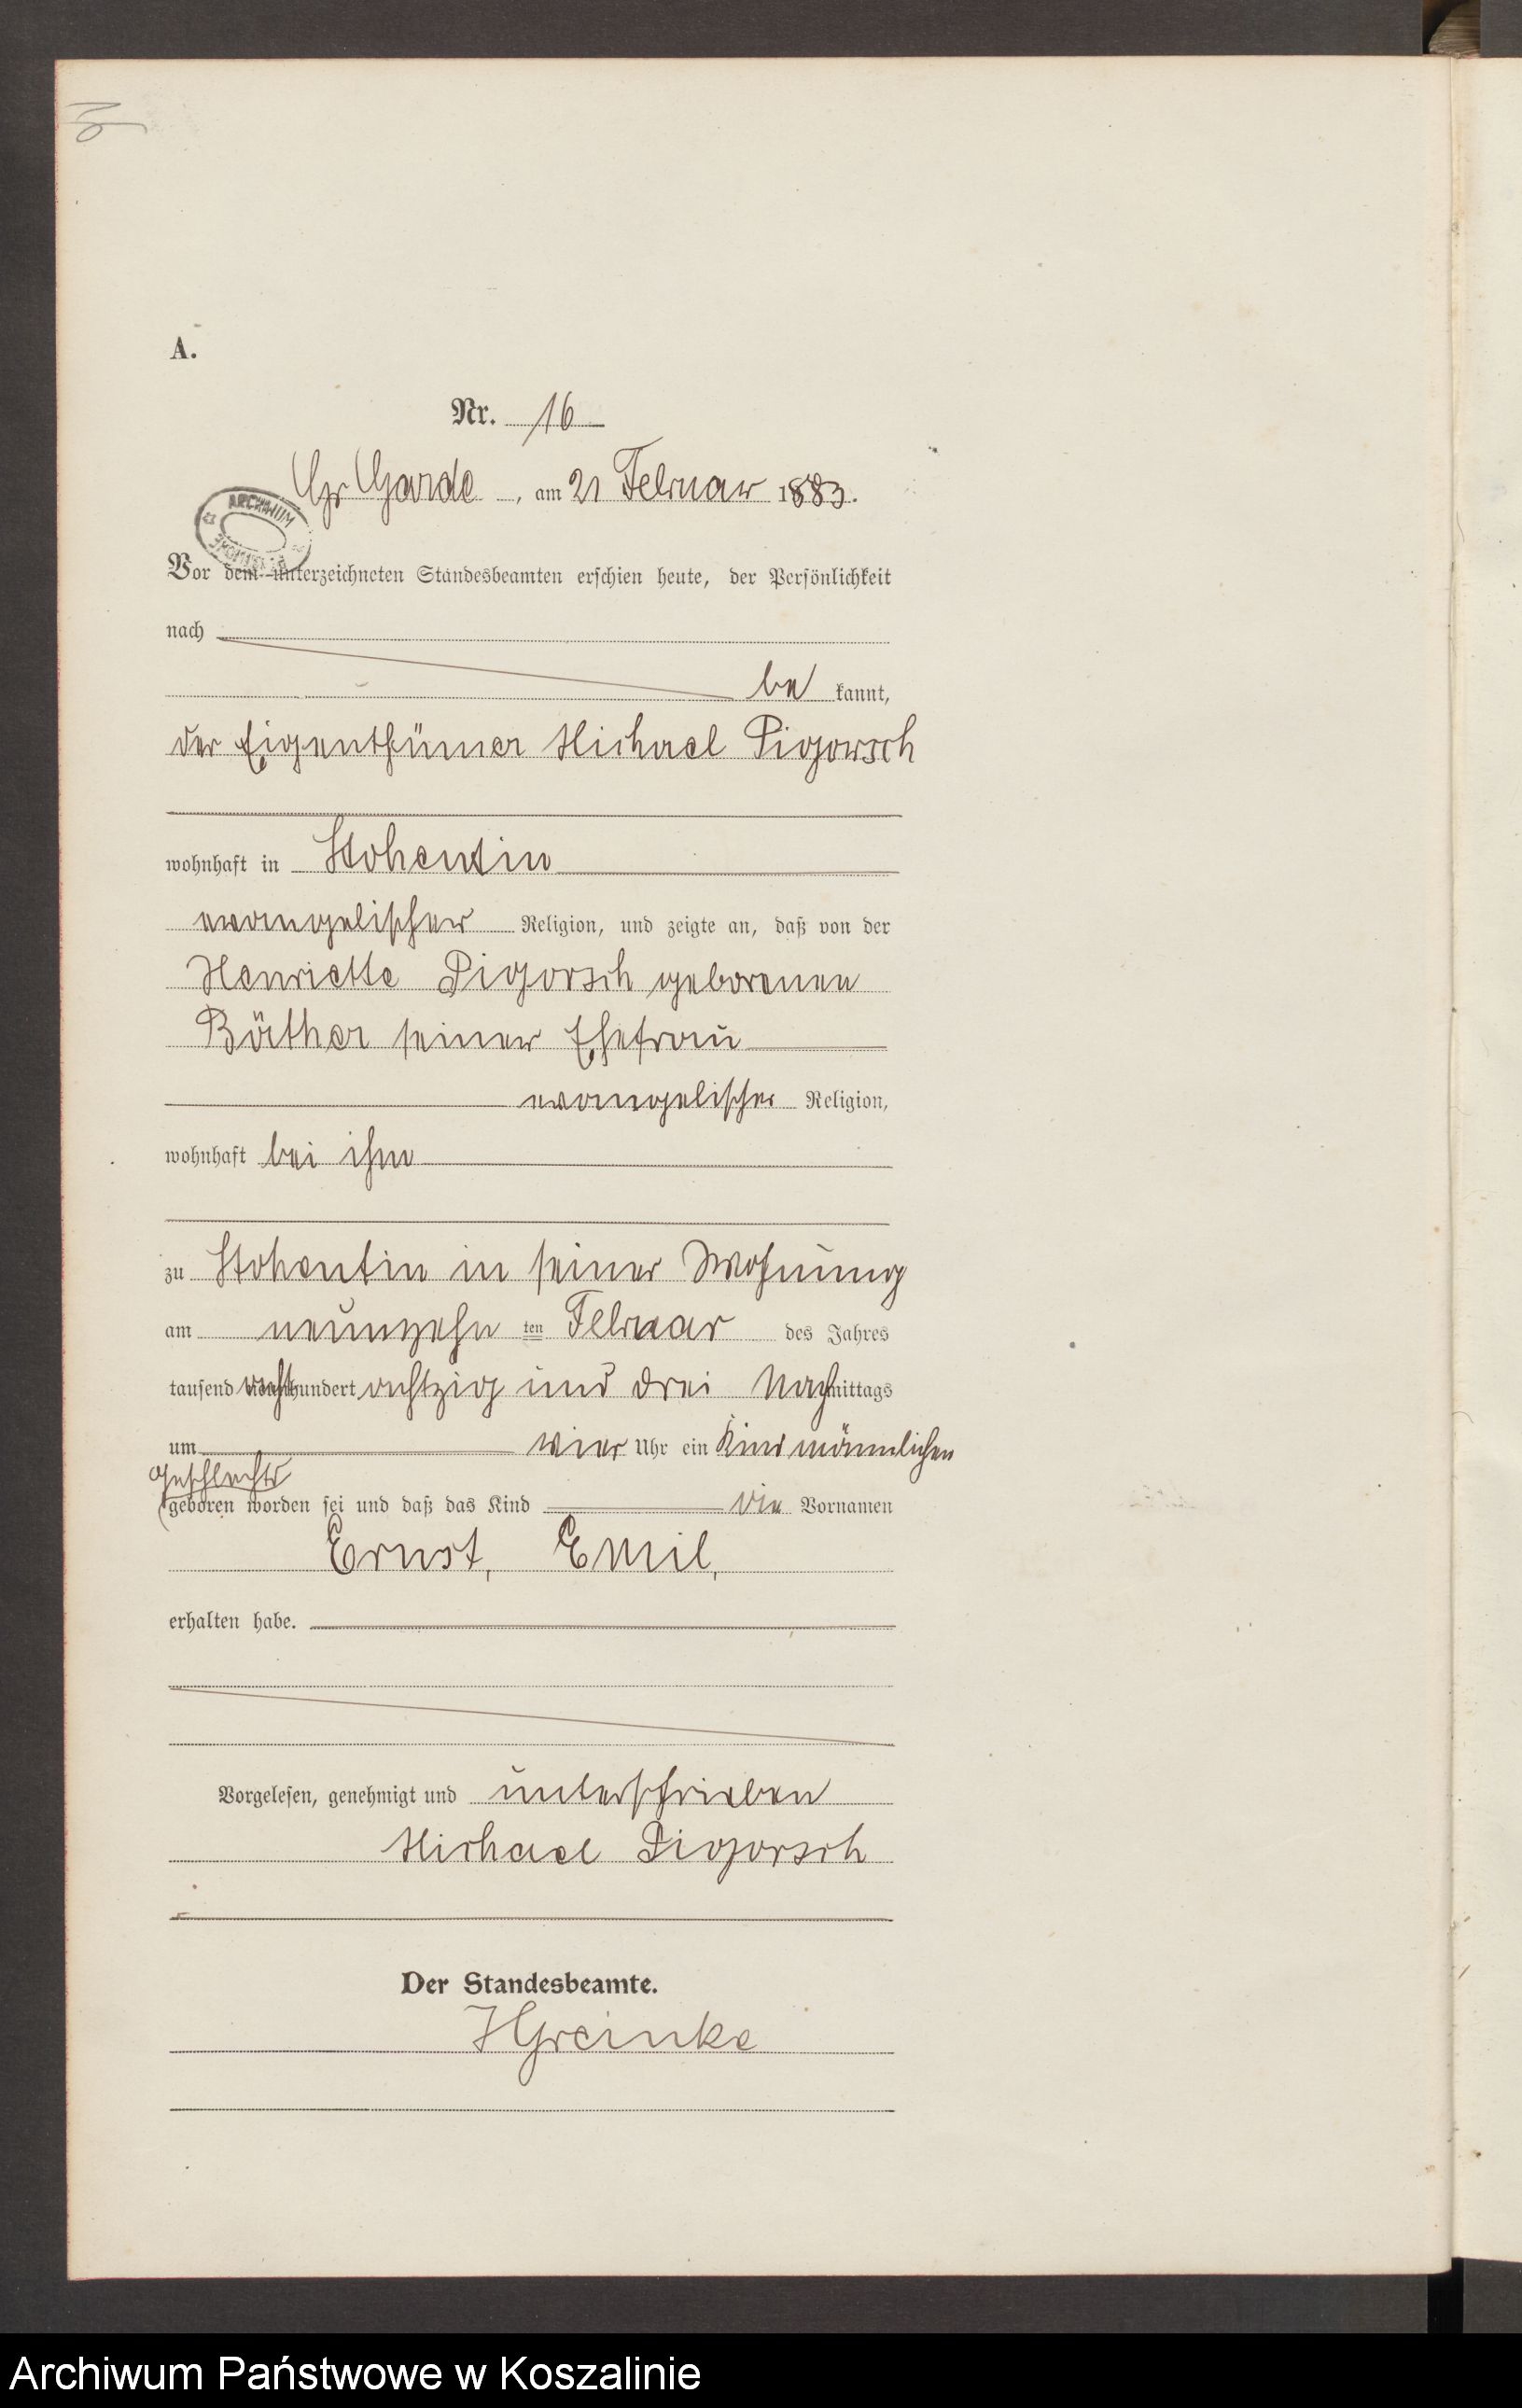 A.
Nr. 16
Gr Garde, am 21 Februar 1883.
ARCHIWUM
Vor dem unterzeichneten Standesbeamten erschien heute, der Persönlichkeit
nach
be kannt,
der Eigenthümer Michael Pigorsch
wohnhaft in Stohentin
evangelischer Religion, und zeigte an, daß von der
Henriette Pigorsch geborenen
Räther seiner Ehefrau
evangelischer Religion,
wohnhaft bei ihm
zu Stohentin in seiner Wohnung
am neunzehn ten Februar des Jahres
tausend acht hundert achtzig und drei Nachmittags
um vier Uhr ein Kind männlichen
Geschlechts
geboren worden sei und daß das Kind die Vornamen
Ernst, Emil,
erhalten habe.
Vorgelesen, genehmigt und unterschrieben
Michael Pigorsch
Der Standesbeamte.
HGreinke
Archiwum Państwowe w Koszalinie